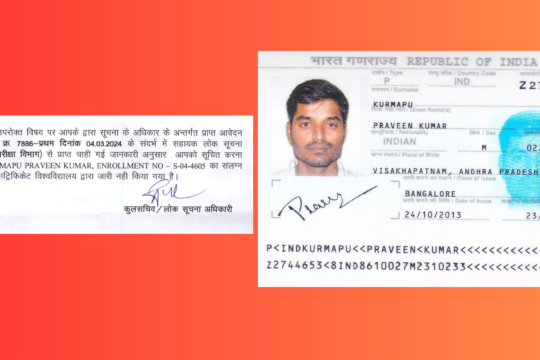 उपरोक्त विषय पर आपके द्वारा सूचना के अधिकार के अन्तर्गत प्राप्त आवेदन
क्र. 7886–प्रथन दिनांक 04.03.2024 के संदर्भ में सहायक लोक सूचना
परीक्षा विभाग) से प्राप्त चाही गई जानकारी अनुसार आपको सूचित करना
MAPU PRAVEEN KUMAR, ENROLLMENT NO – S-04-4605 का संलग्न
सर्ट्रिफिकेट विश्वविद्यालय द्वारा जारी नही किया गया है।
कुलसचिव/लोक सूचना अधिकारी
भारत गणराज्य REPUBLIC OF INDIA
टाईप / Type
राष्ट्र कोड / Country Code
P
IND
Z27
KURMAPU
PRAVEEN KUMAR
राष्ट्रीयता / Nationality
लिंग / Sex
INDIAN
M
02.
Place of Birth
VISAKHAPATNAM, ANDHRA PRADESH
Place of Issue
BANGALORE
Date of Issue
24/10/2013
23/
P<INDKURMAPU<<PRAVEEN<KUMAR<<<<<<<<<<<
Z2744653<8IND8610027M2310233<<<<<<